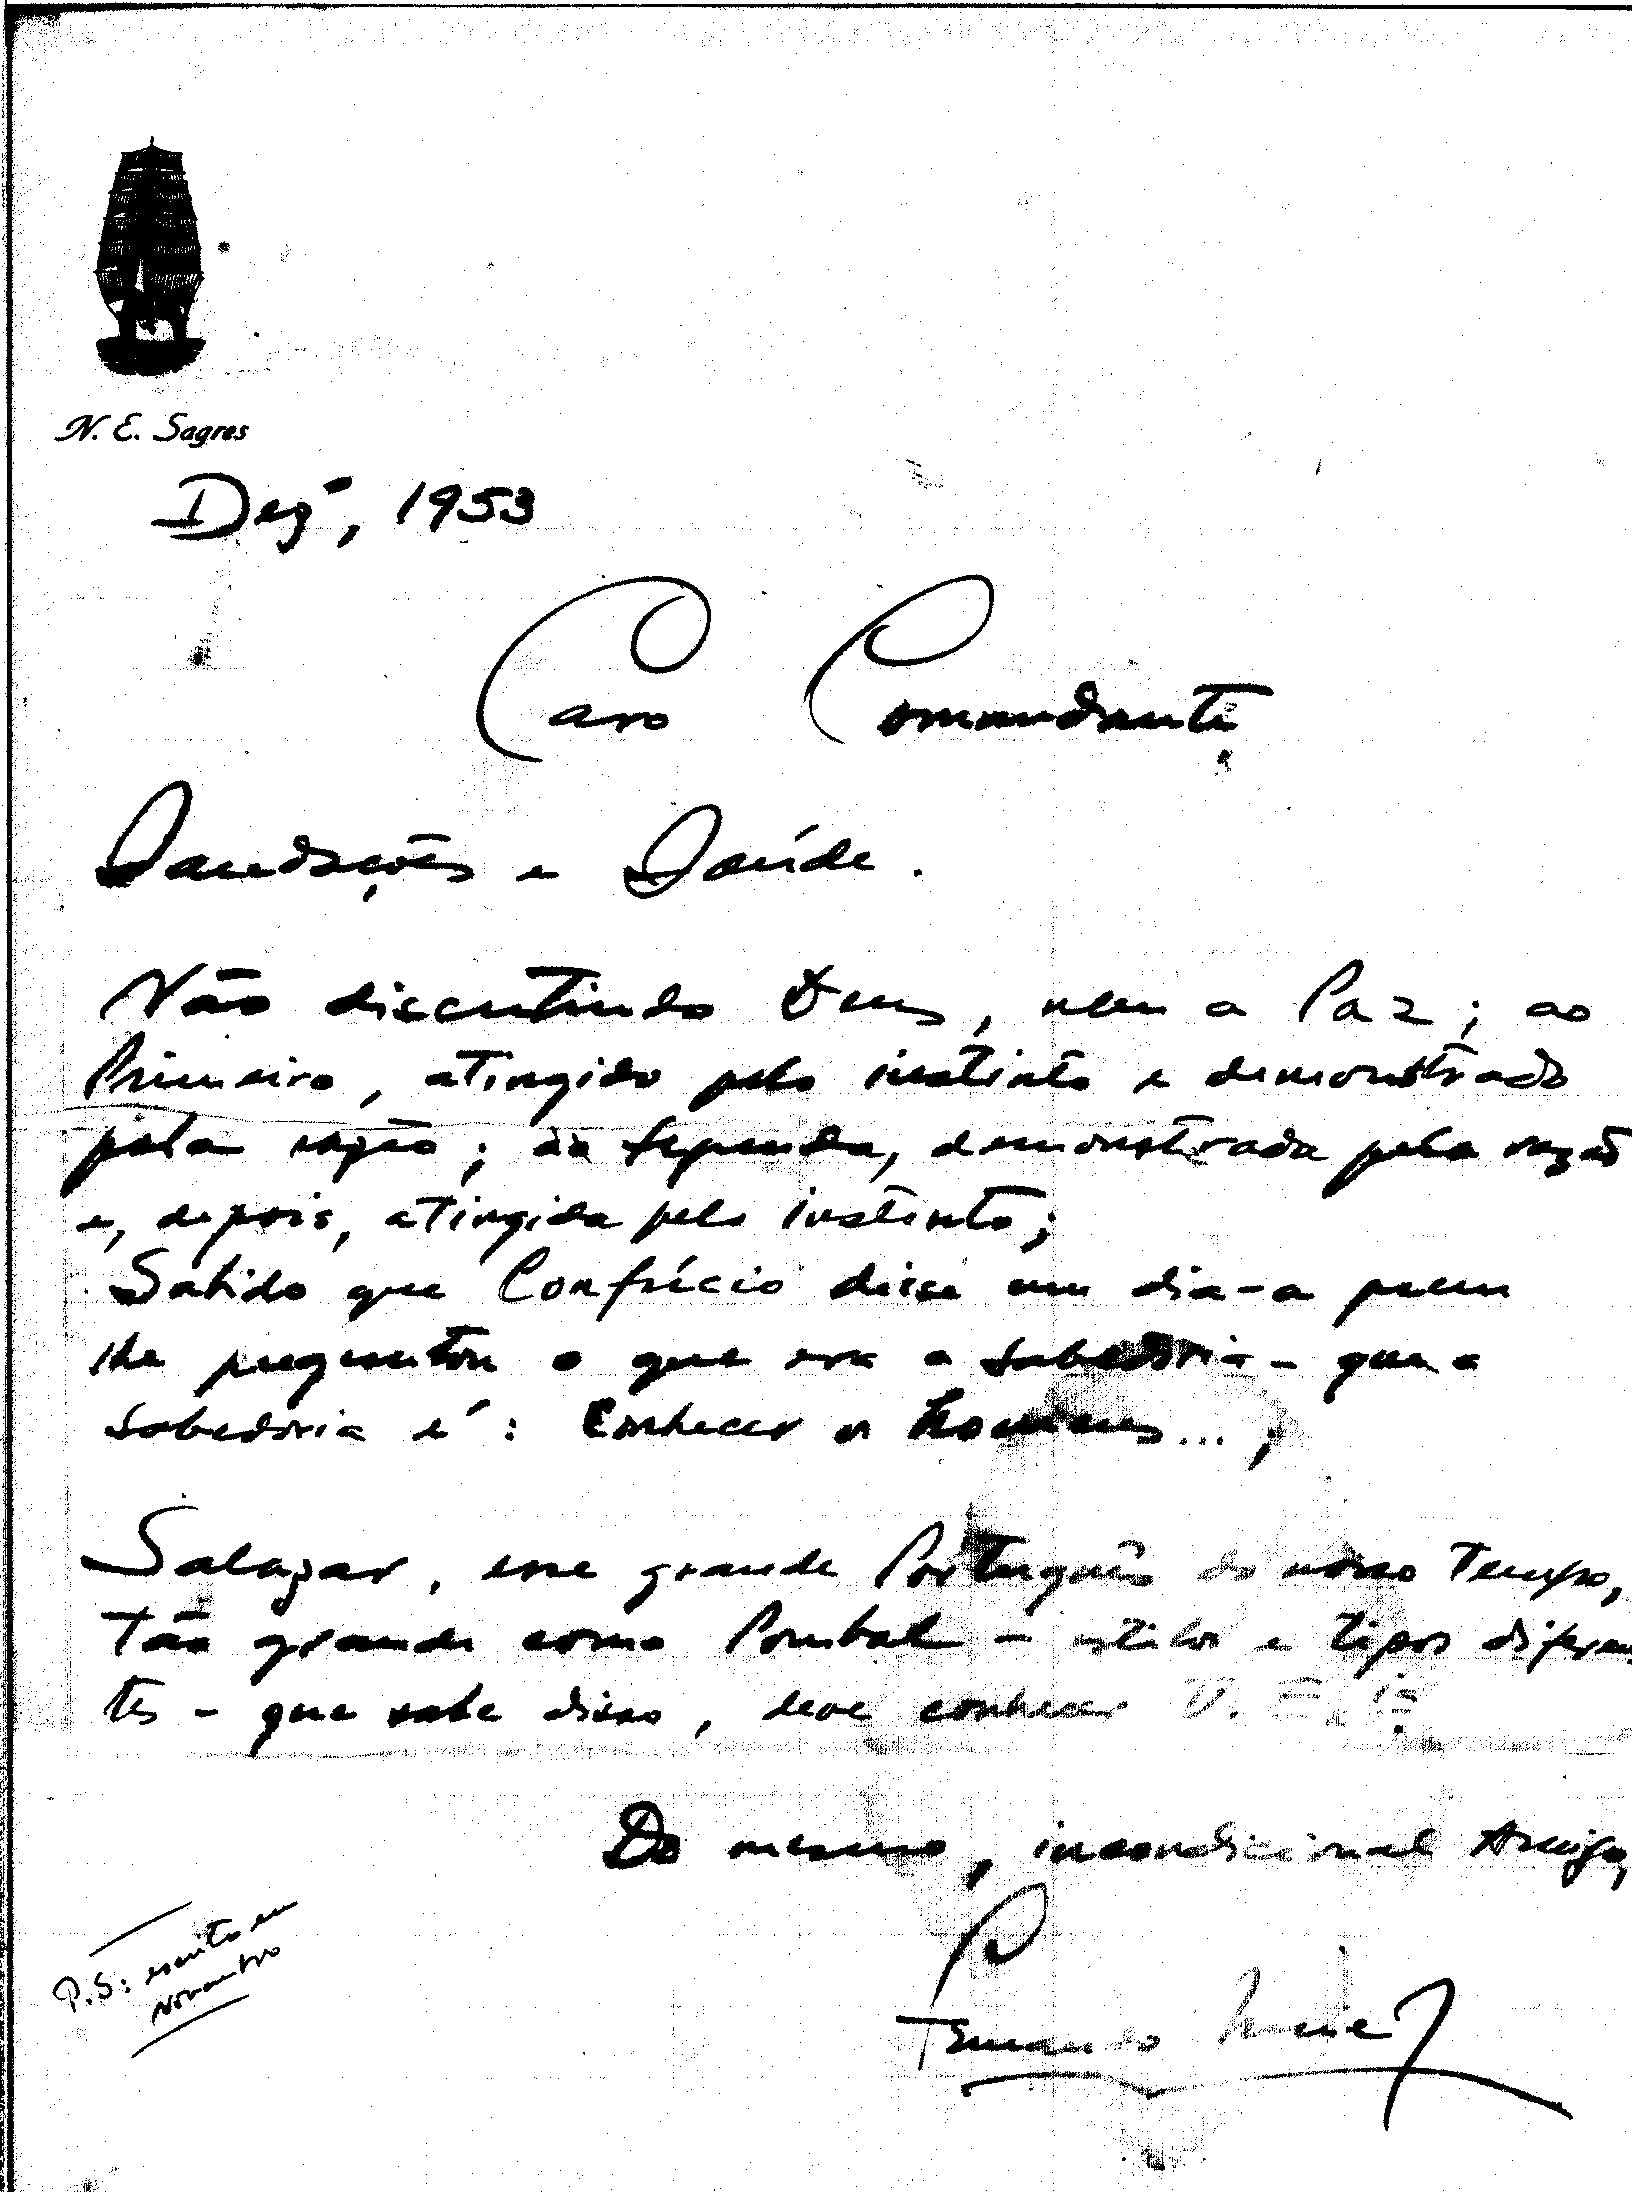 N. E. Sagres
Dezº, 1953
Caro Comandante,
Saudações e Saúde.
Não discutindo Deus, nem a Paz; ao
Primeiro, atingido pelo instinto e demonstrado
pela razão; à Segunda, demonstrada pela razão
e, depois, atingida pelo instinto;
Sabido que Confúcio disse um dia - a quem
lhe perguntou o que era a sabedoria - que a
sabedoria é: Conhecer os homens...;
Salazar, esse grande Português do nosso Tempo,
Tão grande como Pombal - estilos e tipos diferen
tes - que sabe disso, deve conhecer V. Ex.ia
Do mesmo, incondicional Amigo,
Fernando
P.S: escrito em
Novembro